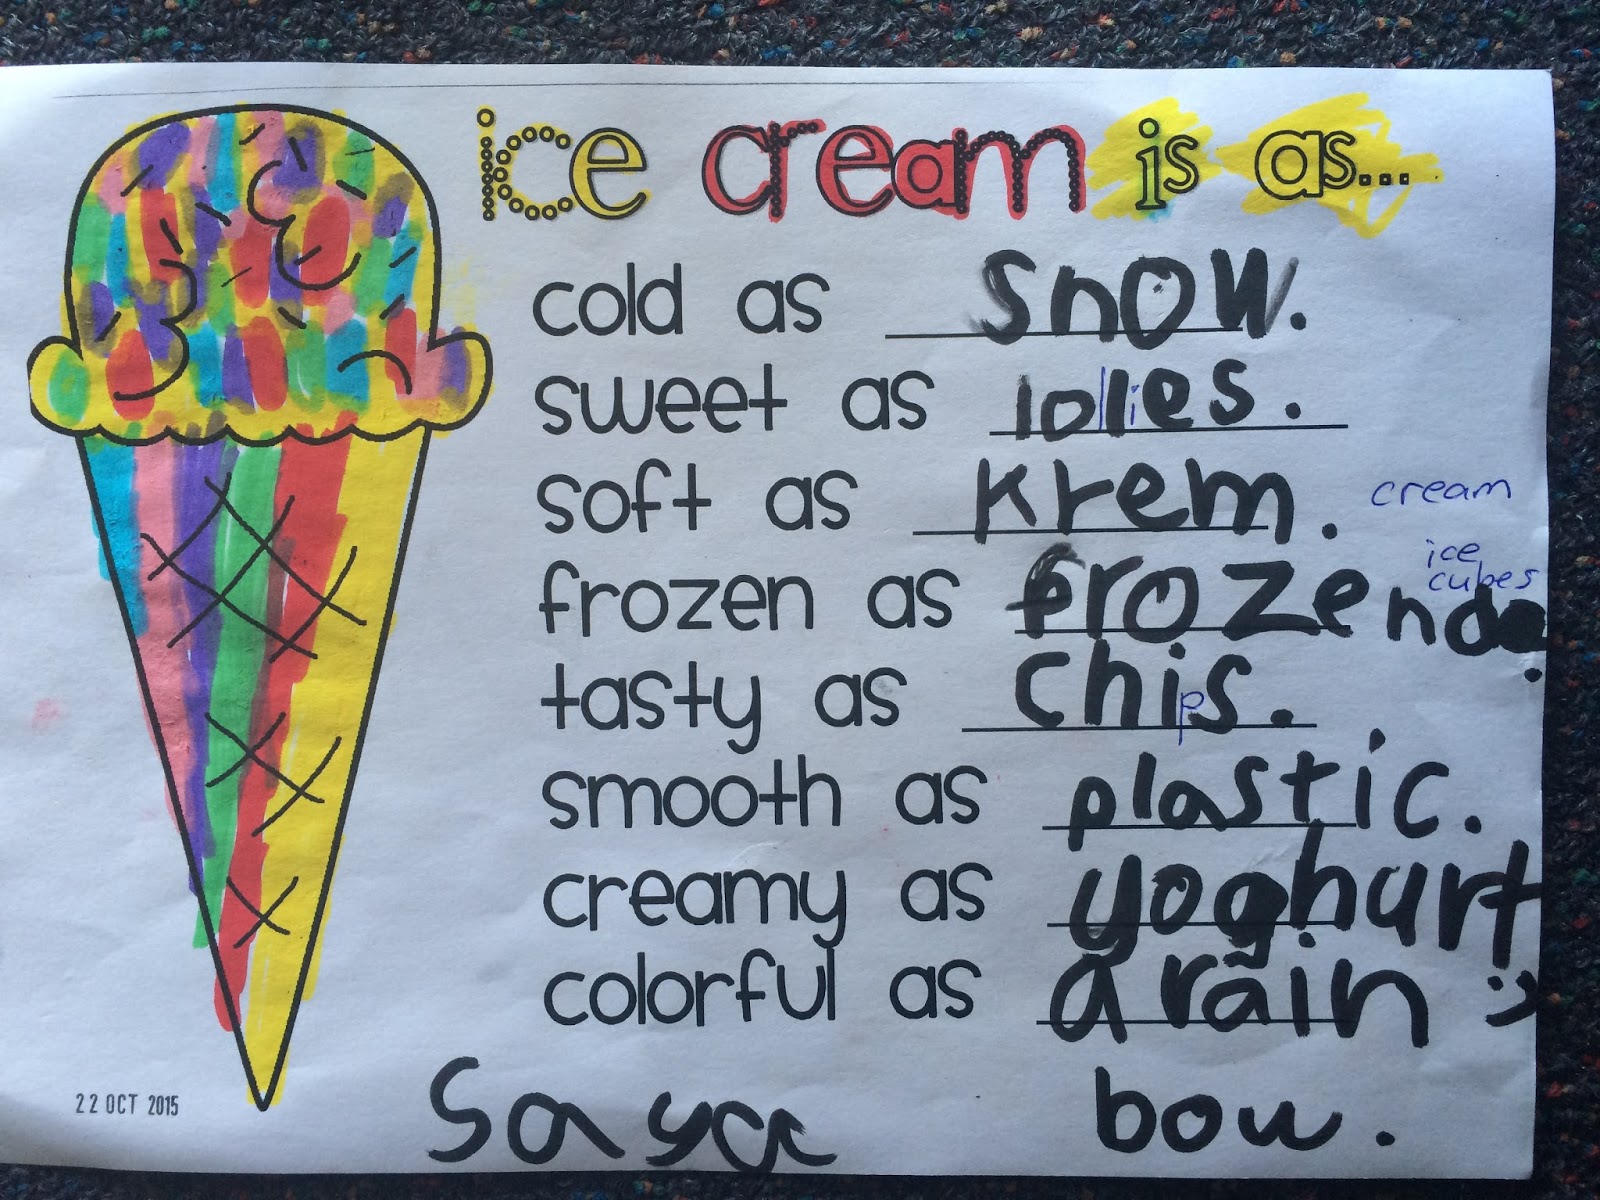 ice cream is as...
cold as snow.
sweet as lollies.
soft as krem. cream
frozen as frozen ice cubes
tasty as chips.
smooth as plastic.
creamy as yoghurt
colorful as a rain
bow.
Saya
22 OCT 2015